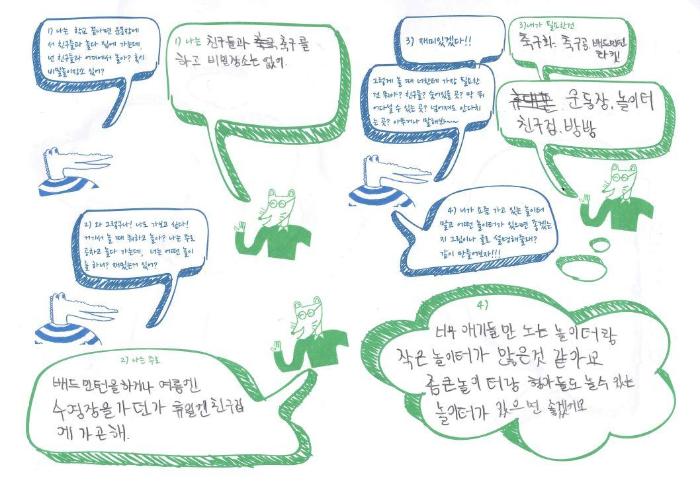 1) 나는 학교 끝나면 운동장에
서 친구들과 놀다 집에 가는데,
넌 친구들과 어디에서 놀아? 혹시
비밀놀이장소 있어?
1) 나는 친구들과 축구를
하고 비밀장소는 없어.
2) 와 그렇구나! 나도 가보고 싶다!
거기서 놀 때 뭐하고 놀아? 나는 주로
공차고 놀다 가는데, 너는 어떤 놀이
를 하니? 재밌는거 있어?
2) 나는 주로
배드민턴을하거나 여름엔
수영장을가던가 휴일엔 친구집
에 가곤해.
3) 재미있겠다!!
그렇게 놀 때 너한테 가장 필요한
건 뭐야? 친구들? 숨어있을 곳? 막 뛰
어다닐 수 있는 곳? 넘어져도 안다치
는 곳? 아무거나 말해봐~~~
3) 내가 필요한건
축구화, 축구공, 배드민턴
라켓!
휴대폰 운동장, 놀이터
친구집, 방방
4) 너가 요즘 가고 있는 놀이터
말고 어떤 놀이터가 있다면 좋겠는
지 그림이나 글로 설명해줄래?
같이 만들어보자!!!
4)
너무 애기들만 노는 놀이터랑
작은 놀이터가 많은것 같아고
좀큰놀이터랑 형아들도 놀수 있는
놀이터가 있으면 좋겠게요